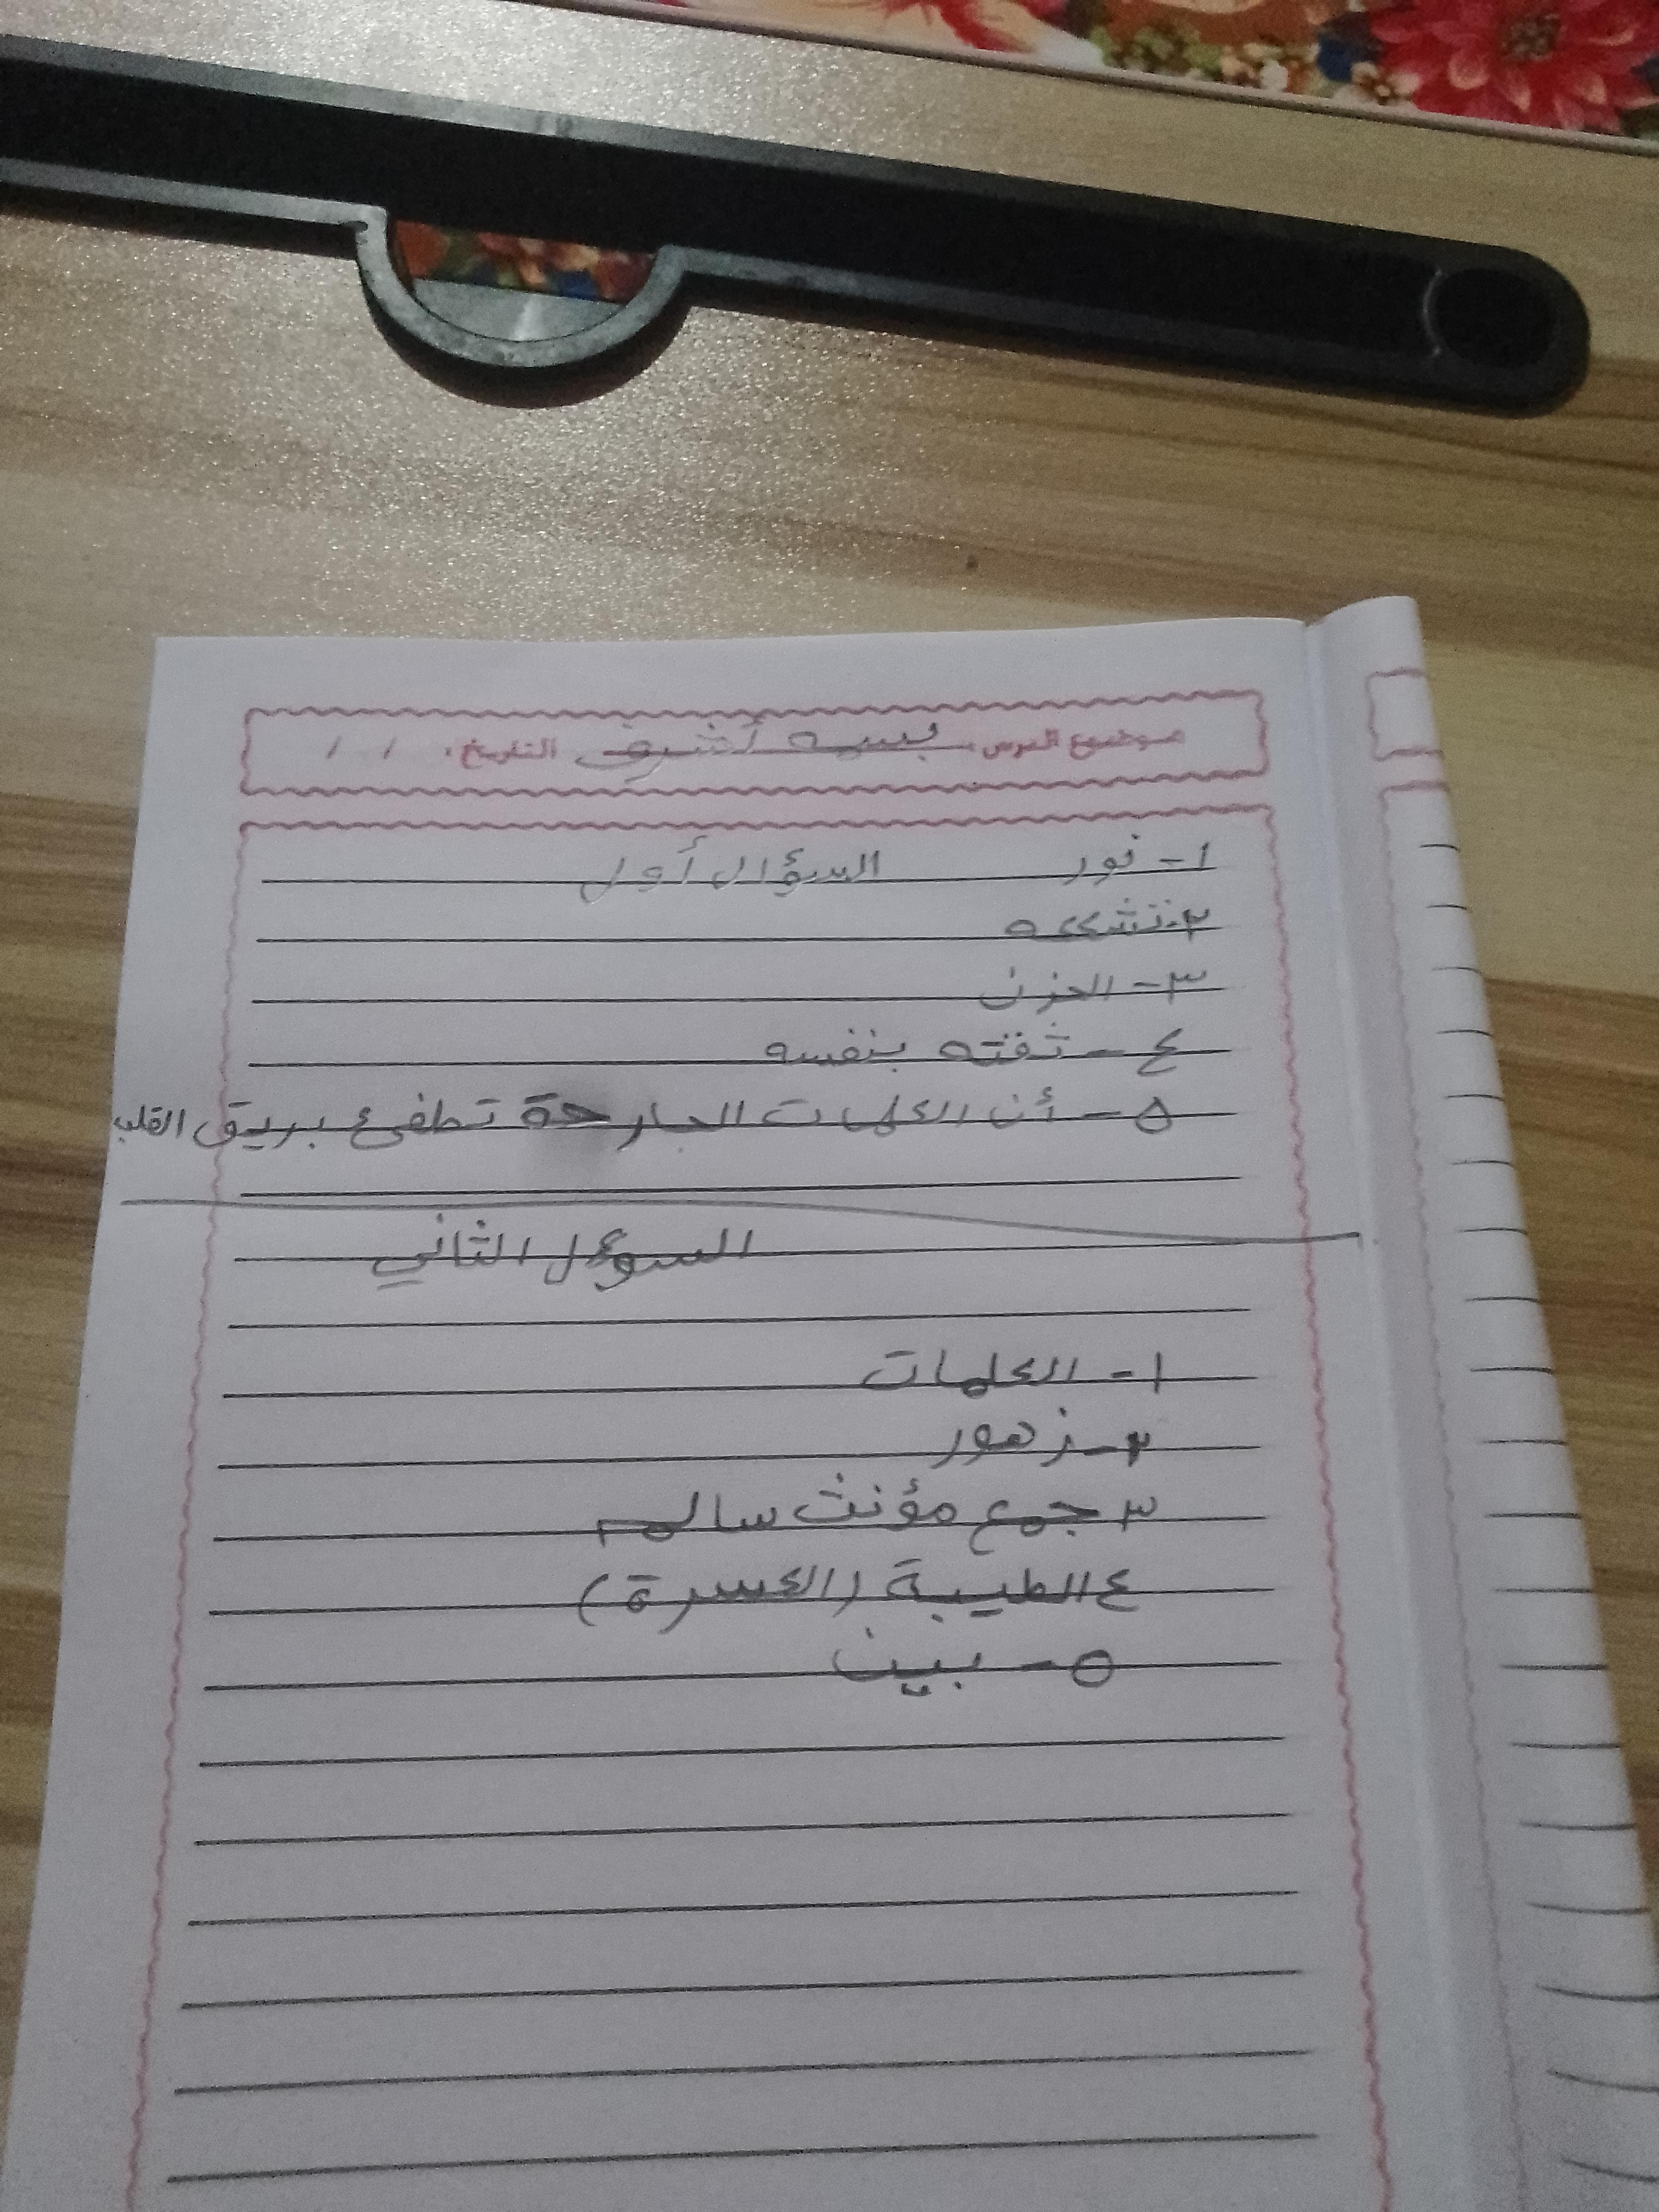 موضوع الدرس: بسمه أشرف التاريخ: / /
١- نور السؤال أول
٢- تشككه
٣- الحزن
٤- ثقته بنفسه
٥- أن الكلمات الجارحة تطفئ بريق القلب
السوئل الثاني
١- الكلمات
٢- زهور
٣ جمع مؤنث سالم
٤ الطيبة (الكسرة)
٥- بين